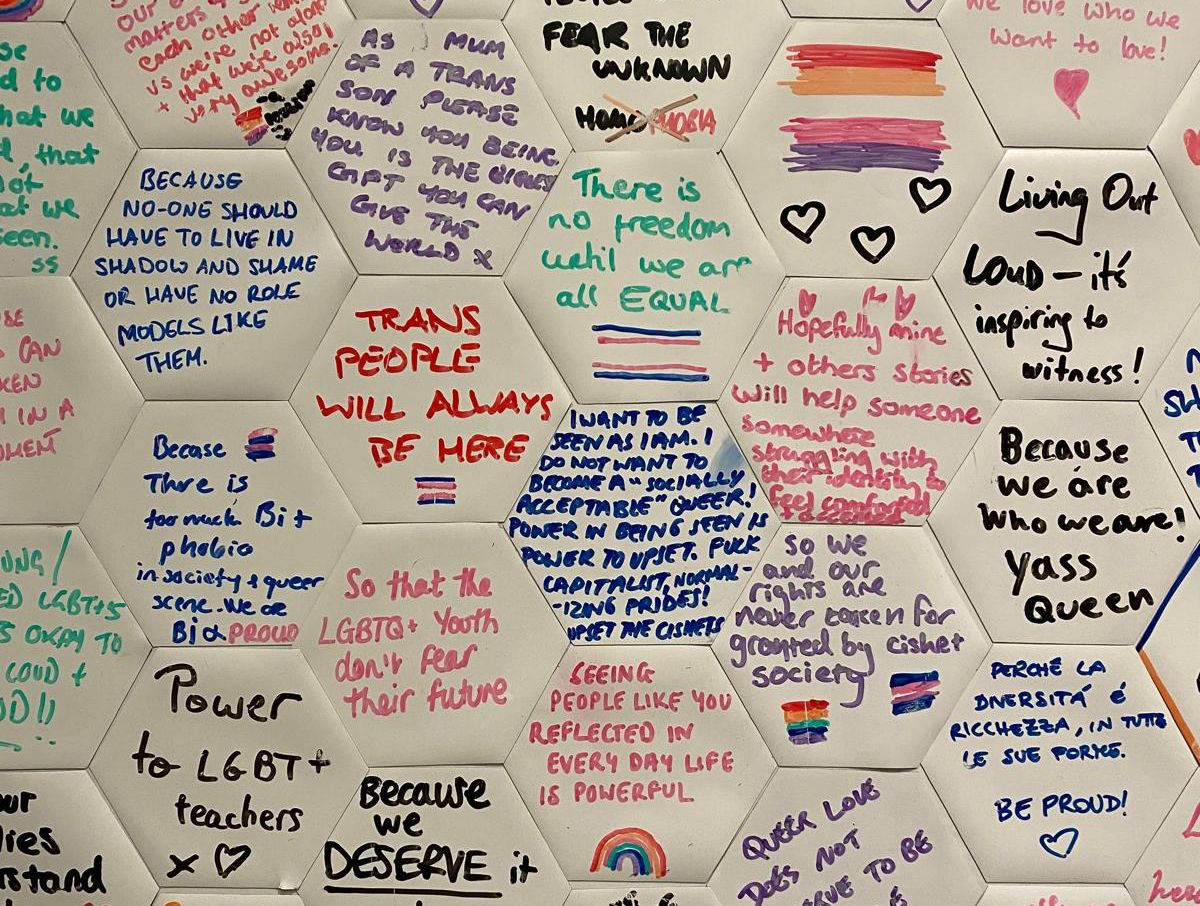 our
matters
each other
us we're not alone
+ that we're also
very awesome.
AS A MUM
OF A TRANS
SON PLEASE
KNOW YOU BEING
YOU IS THE BIGGEST
GIFT YOU CAN
GIVE THE
WORLD X
FEAR THE
UNKNOWN
HOMOPHOBIA
we love who we
want to love!
se
d to
hat we
, that
not
at we
seen.
ss
BECAUSE
NO-ONE SHOULD
HAVE TO LIVE IN
SHADOW AND SHAME
OR HAVE NO ROLE
MODELS LIKE
THEM.
There is
no freedom
until we are
all EQUAL
Living Out
Loud - it's
inspiring to
witness!
TRANS
PEOPLE
WILL ALWAYS
BE HERE
Hopefully mine
+ others stories
will help someone
somewhere
struggling with
their identity to
feel comforted
+ accepted
CAN
KEN
IN A
MENT
Becase
There is
too much Bi +
phobia
in society + queer
scene. We are
Bi & PROUD
I WANT TO BE
SEEN AS I AM. I
DO NOT WANT TO
BECOME A "SOCIALLY
ACCEPTABLE" QUEER!
POWER IN BEING SEEN IS
POWER TO UPSET. FUCK
CAPITALIST, NORMAL-
-IZING PRIDES!
UPSET THE CISHETS
Because
we are
who we are!
Yass
Queen
UNG/
ED LGBT+S
S OKAY TO
LOUD +
UD!!
So that the
LGBTQ+ Youth
don't fear
their future
So we
and our
rights are
never taken for
granted by cishet
society
Power
to LGBT+
teachers
x
SEEING
PEOPLE LIKE YOU
REFLECTED IN
EVERY DAY LIFE
IS POWERFUL
PERCHÉ LA
DIVERSITÁ É
RICCHEZZA, IN TUTTE
LE SUE FORME.
BE PROUD!
our
ries
rstand
Because
we
DESERVE it
QUEER LOVE
DOES NOT
RVE TO BE
her